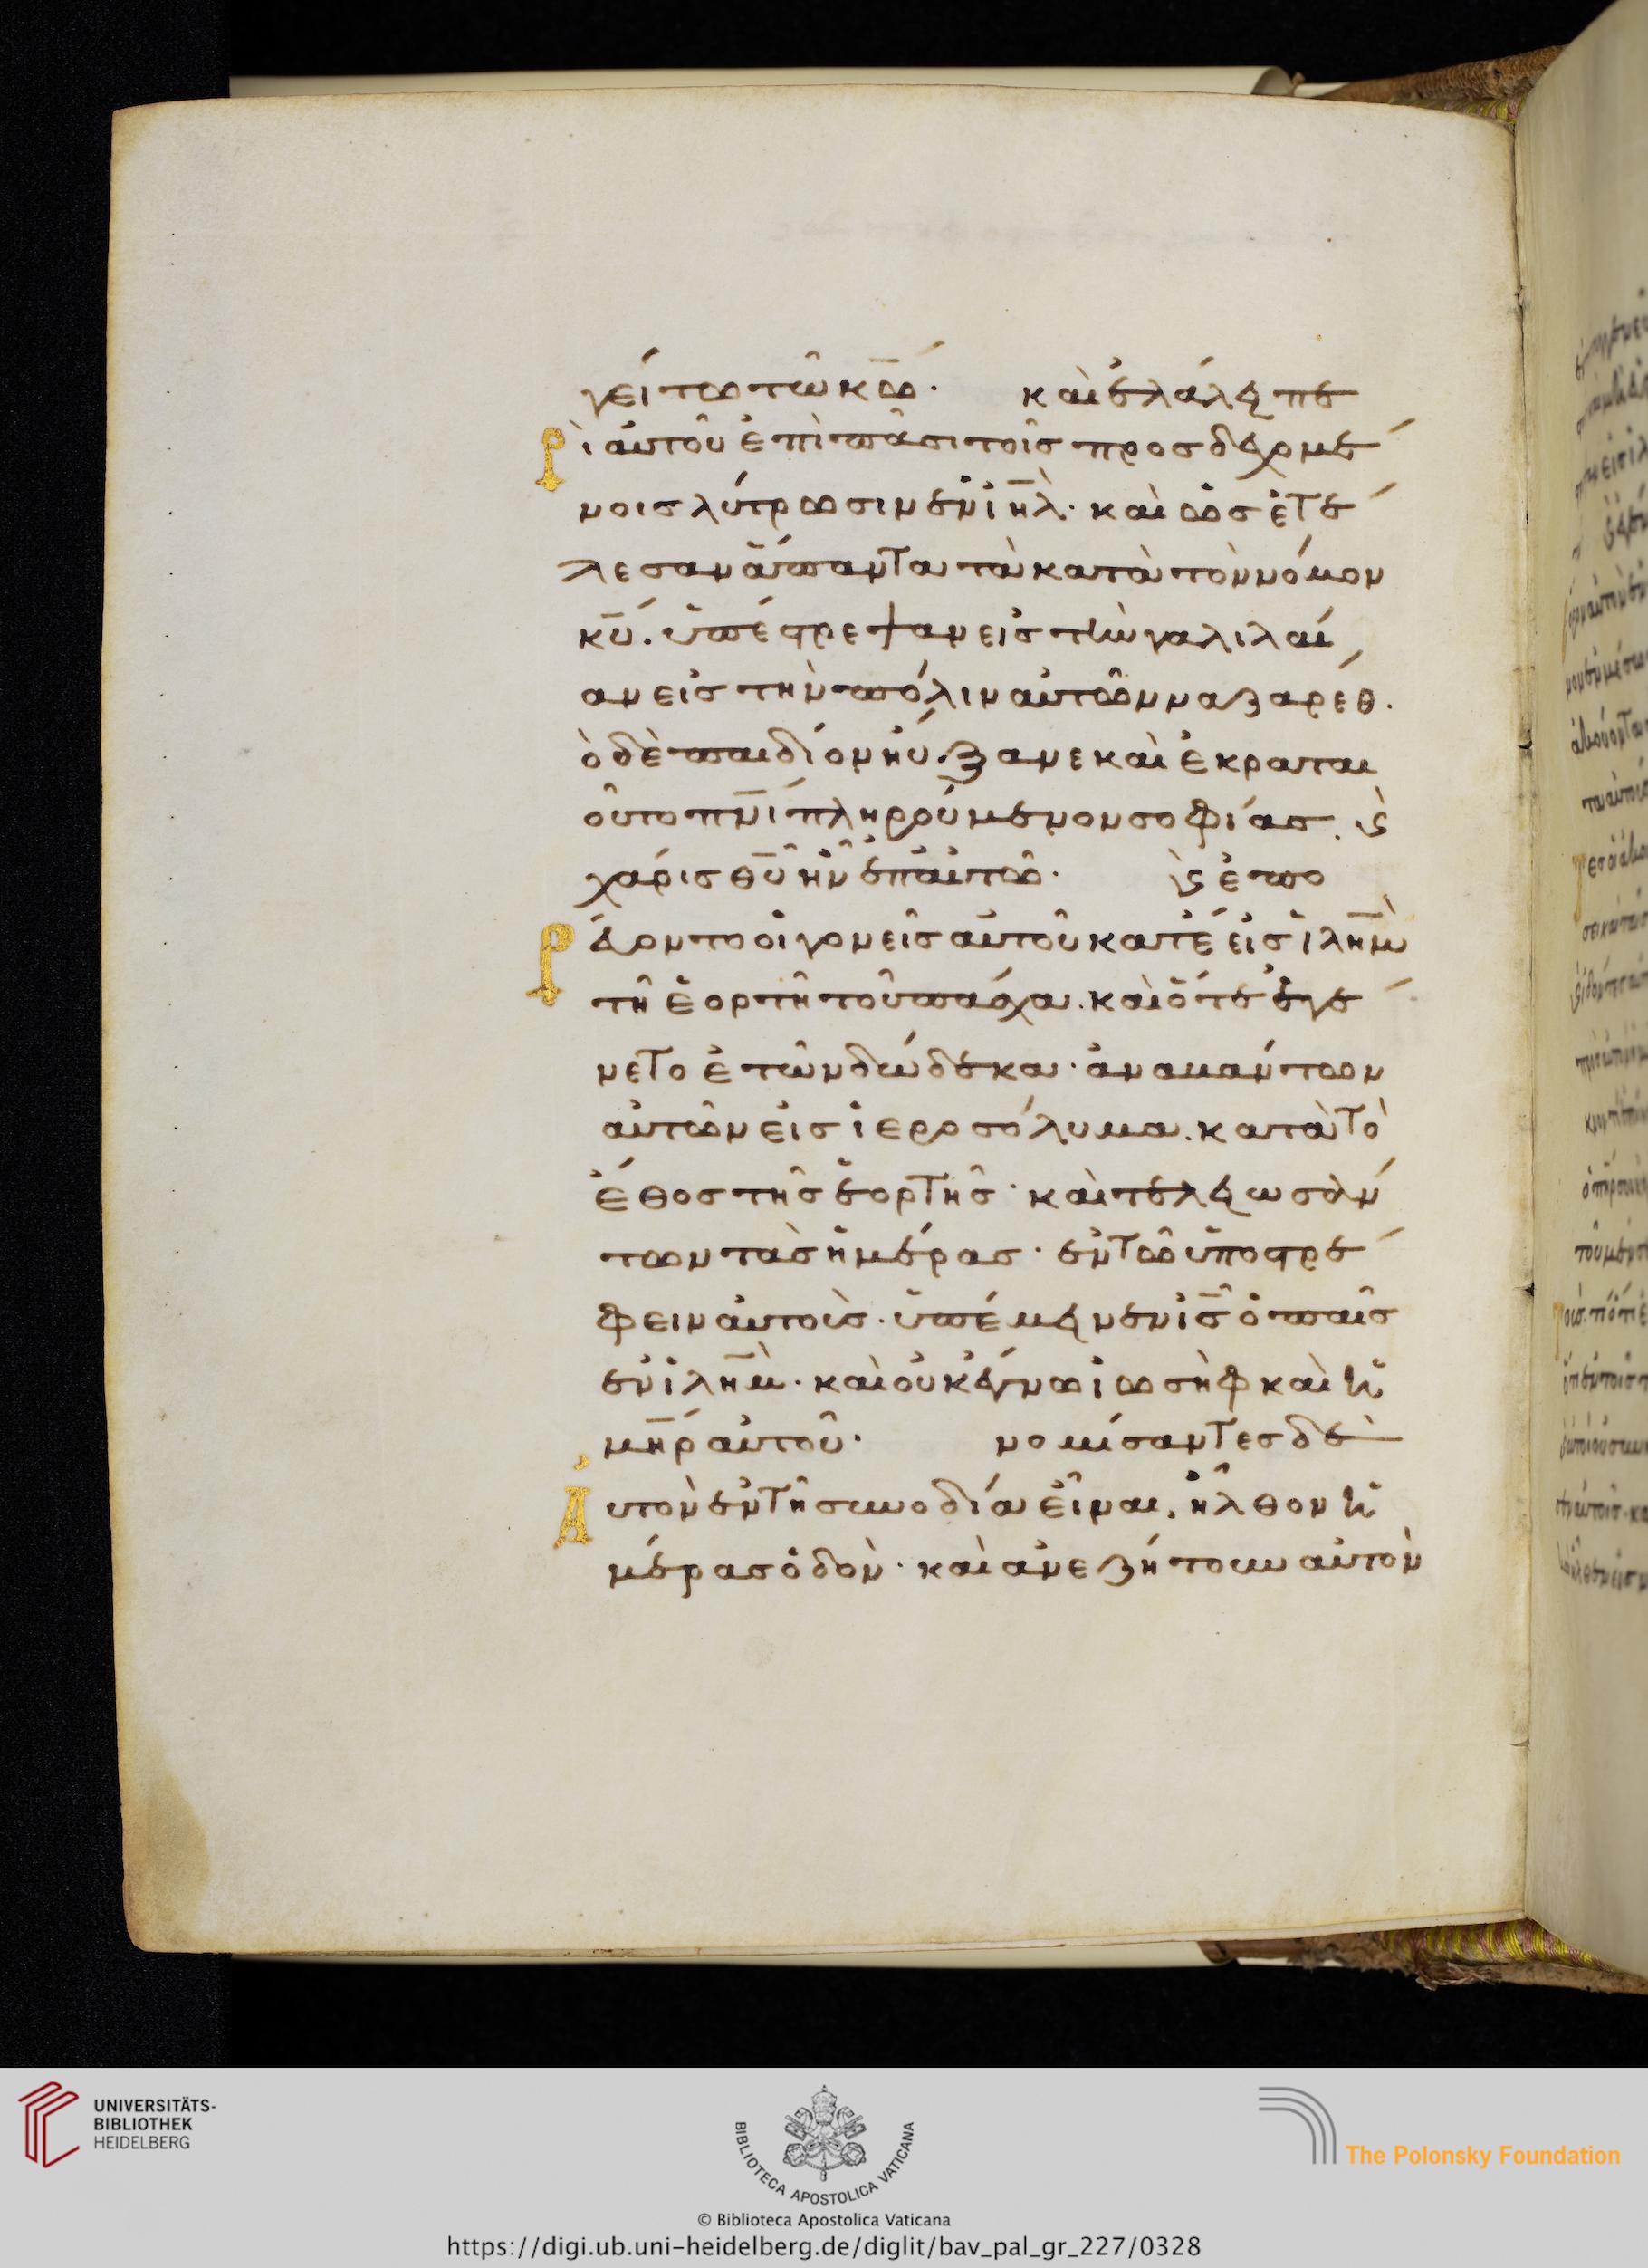 γείτο τῶ κ̅ω̅· καὶ ἐλάλει πε
ρὶ αὐτοῦ ἐπὶ πᾶσι τοῖς προσδεχομέ
νοις λύτρωσιν ἐν ἰη̅λ̅· καὶ ὡς ἐτέ
λεσαν ἅπαντα τὰ κατὰ τὸν νόμον
κ̅υ̅. ὑπέστρεψαν εἰς τὴν γαλιλαί
αν εἰς τὴν πόλιν αὐτῶν ναζαρέθ.
ὁ δὲ παιδίον ηὔξανε καὶ ἐκραται
οῦτο π̅ν̅ι̅ πληρούμενον σοφίας. ϗ
χάρις θ̅υ̅ ἦν ἐπ αὐτῶ· ϗ ἐπο
ρεύοντο οἱ γονεῖς αὐτοῦ κατ ἔ εἰς ἰλη̅μ̅
τῆ ἑορτῆ τοῦ πάσχα. καὶ ὅτε ἐγέ
νετο ἐτῶν δώδεκα· ἀναβάντων
αὐτῶν εἰς ἱεροσόλυμα. κατὰ τὸ
ἔθος τῆς ἑορτῆς· καὶ τελειωσάν
των τὰς ἡμέρας· ἐν τῶ ὑποστρέ
φειν αὐτοὺς. ὑπέμεινεν ἰ̅ς̅ ὁ παῖς
ἐν ἰλη̅μ̅· καὶ οὐκ ἔγνω ἰωσὴφ καὶ ἡ
μ̅η̅ρ̅ αὐτοῦ· νομίσαντες δὲ
Αὐτὸν ἐν τῆ συνοδία εἶναι, ἦλθον ἡ
μέρας ὁδὸν· καὶ ἀνεζήτουν αὐτὸν
UNIVERSITÄTS-
BIBLIOTHEK
HEIDELBERG
BIBLIOTECA APOSTOLICA VATICANA
The Polonsky Foundation
© Biblioteca Apostolica Vaticana
https://digi.ub.uni-heidelberg.de/diglit/bav_pal_gr_227/0328